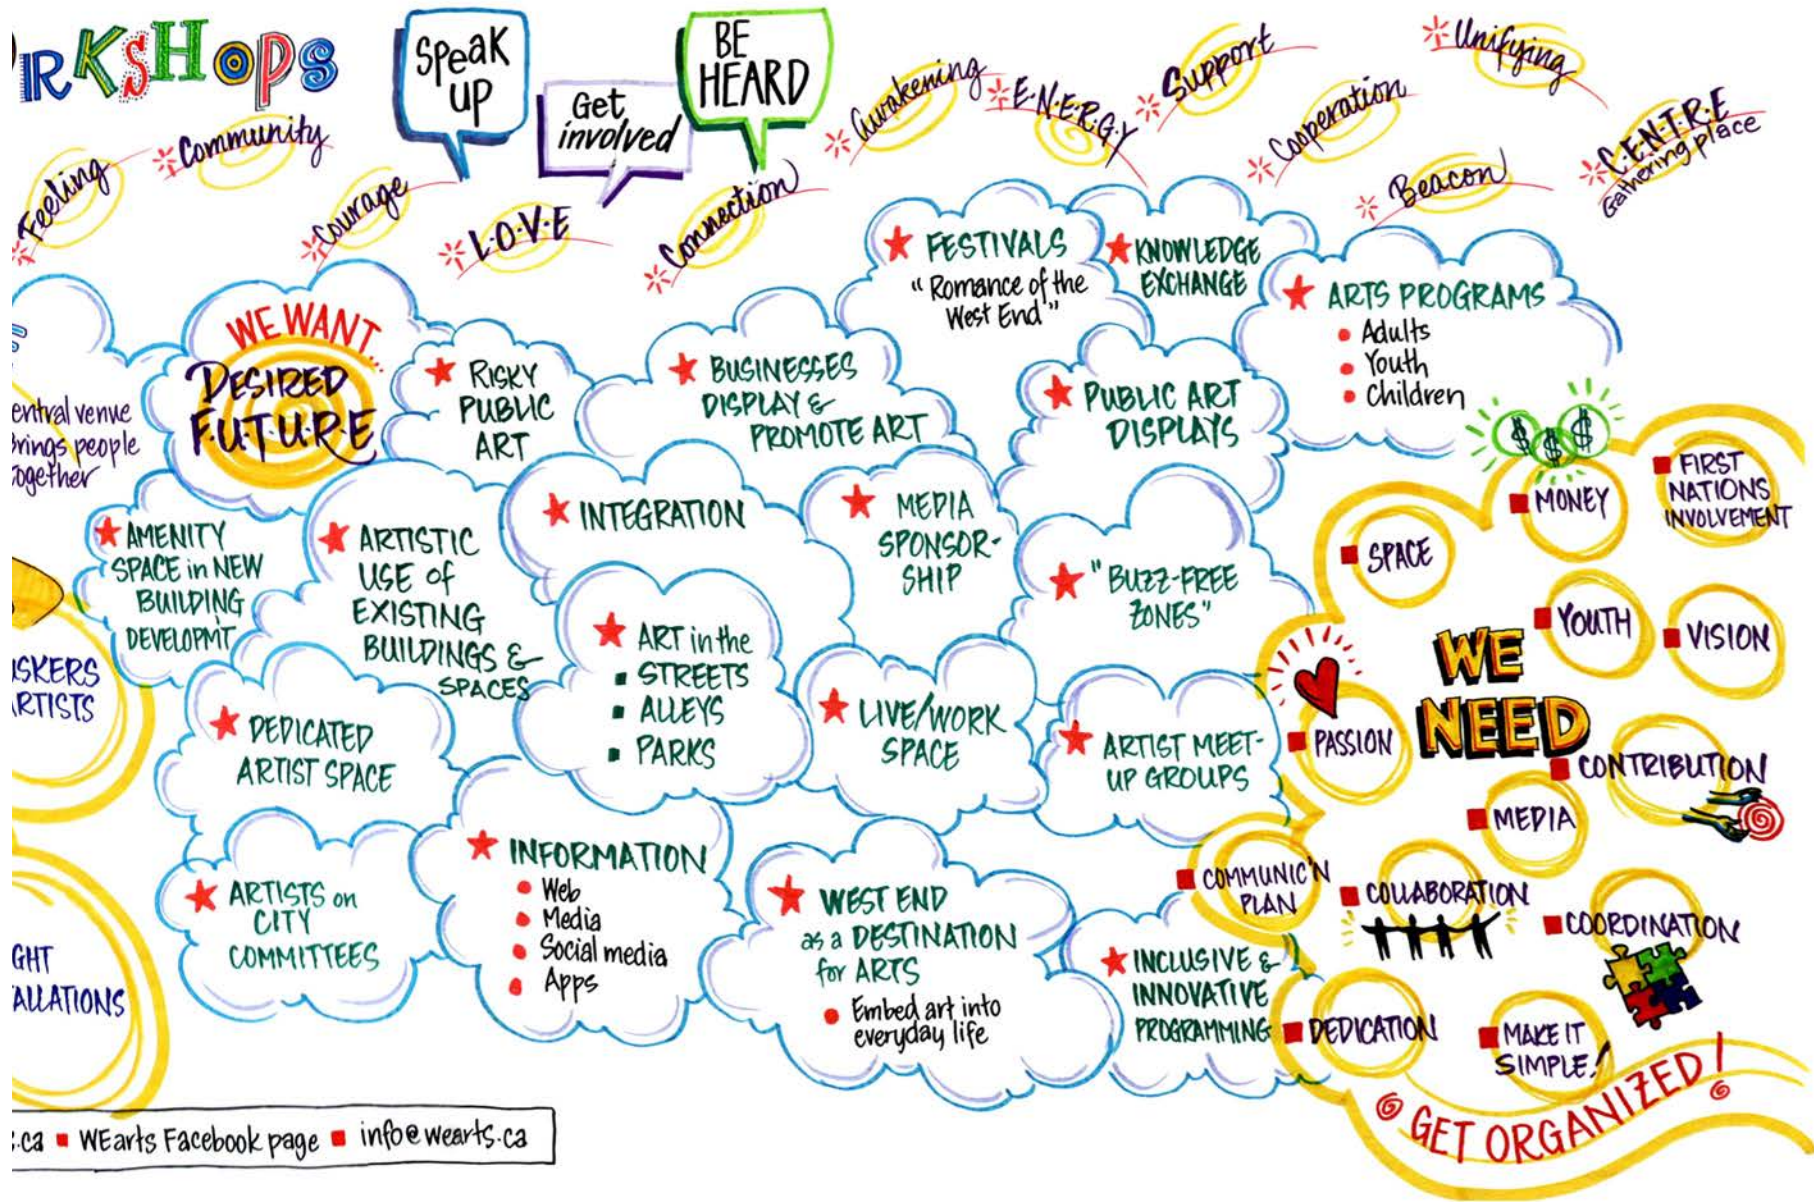 RKSHOPS
Speak
up
Get
involved
BE
HEARD
Feeling
Community
Courage
L·O·V·E
Connection
Awakening
E·N·E·R·G·Y
Support
Cooperation
Unifying
Beacon
C·E·N·T·R·E
Gathering place
WE WANT...
DESIRED
F·U·T·U·R·E
entral venue
Brings people
together
RISKY
PUBLIC
ART
BUSINESSES
DISPLAY &
PROMOTE ART
FESTIVALS
"Romance of the
West End"
KNOWLEDGE
EXCHANGE
ARTS PROGRAMS
Adults
Youth
Children
PUBLIC ART
DISPLAYS
AMENITY
SPACE in NEW
BUILDING
DEVELOPM'T
ARTISTIC
USE of
EXISTING
BUILDINGS &
SPACES
INTEGRATION
MEDIA
SPONSOR-
SHIP
"BUZZ-FREE
ZONES"
ART in the
STREETS
ALLEYS
PARKS
LIVE/WORK
SPACE
ARTIST MEET-
UP GROUPS
DEDICATED
ARTIST SPACE
ARTISTS on
CITY
COMMITTEES
INFORMATION
Web
Media
Social media
Apps
WEST END
as a DESTINATION
for ARTS
Embed art into
everyday life
INCLUSIVE &
INNOVATIVE
PROGRAMMING
USKERS
ARTISTS
GHT
ALLATIONS
WE
NEED
$ $ $
MONEY
FIRST
NATIONS
INVOLVEMENT
SPACE
YOUTH
VISION
PASSION
CONTRIBUTION
MEDIA
COMMUNIC'N
PLAN
COLLABORATION
COORDINATION
DEDICATION
MAKE IT
SIMPLE!
GET ORGANIZED!
.ca ■ WEarts Facebook page ■ info@wearts.ca